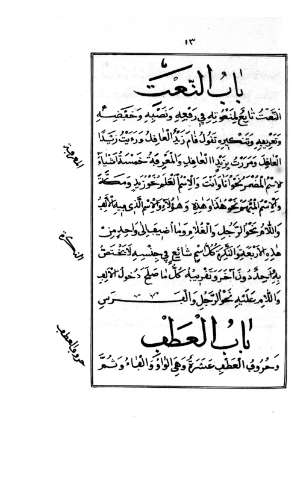 ١٣
بَابُ النَّعْتِ
النَّعْتُ تَابِعٌ لِمَنْعُوتِهِ فِي رَفْعِهِ وَنَصْبِهِ وَخَفْضِهِ
وَتَعْرِيفِهِ وَتَنْكِيرِهِ تَقُولُ قَامَ زَيْدٌ الْعَاقِلُ وَرَءَيْتُ زَيْدًا
الْعَاقِلَ وَمَرَرْتُ بِزَيْدٍ الْعَاقِلِ وَالْمَعْرِفَةُ خَمْسَةُ اَشْيَاءَ
الْاِسْمُ الْمُضْمَرُ نَحْوُ اَنَا وَاَنْتَ وَالْاِسْمُ الْعَلَمُ نَحْوُ زَيْدٍ وَمَكَّةَ
وَالْاِسْمُ الْمُبْهَمُ نَحْوُ هٰذَا وَهٰذِهِ وَهٰؤُلَاءِ وَالْاِسْمُ الَّذِي فِيهِ الْاَلِفُ
وَاللَّامُ نَحْوُ الرَّجُلُ وَالْغُلَامُ وَمَا اُضِيفَ اِلَى وَاحِدٍ مِنْ
هٰذِهِ الْاَرْبَعَةِ وَالنَّكِرَةُ كُلُّ اسْمٍ شَائِعٍ فِي جِنْسِهِ لَا يَخْتَصُّ
بِهِ وَاحِدٌ دُونَ آخَرَ وَتَقْرِيبُهُ كُلُّ مَا صَلَحَ دُخُولُ الْاَلِفِ
وَاللَّامِ عَلَيْهِ نَحْوُ الرَّجُلِ وَالْفَرَسِ
بَابُ الْعَطْفِ
وَحُرُوفُ الْعَطْفِ عَشَرَةٌ وَهِيَ الْوَاوُ وَالْفَاءُ وَثُمَّ
المعرفة
النكرة
حروف العطف